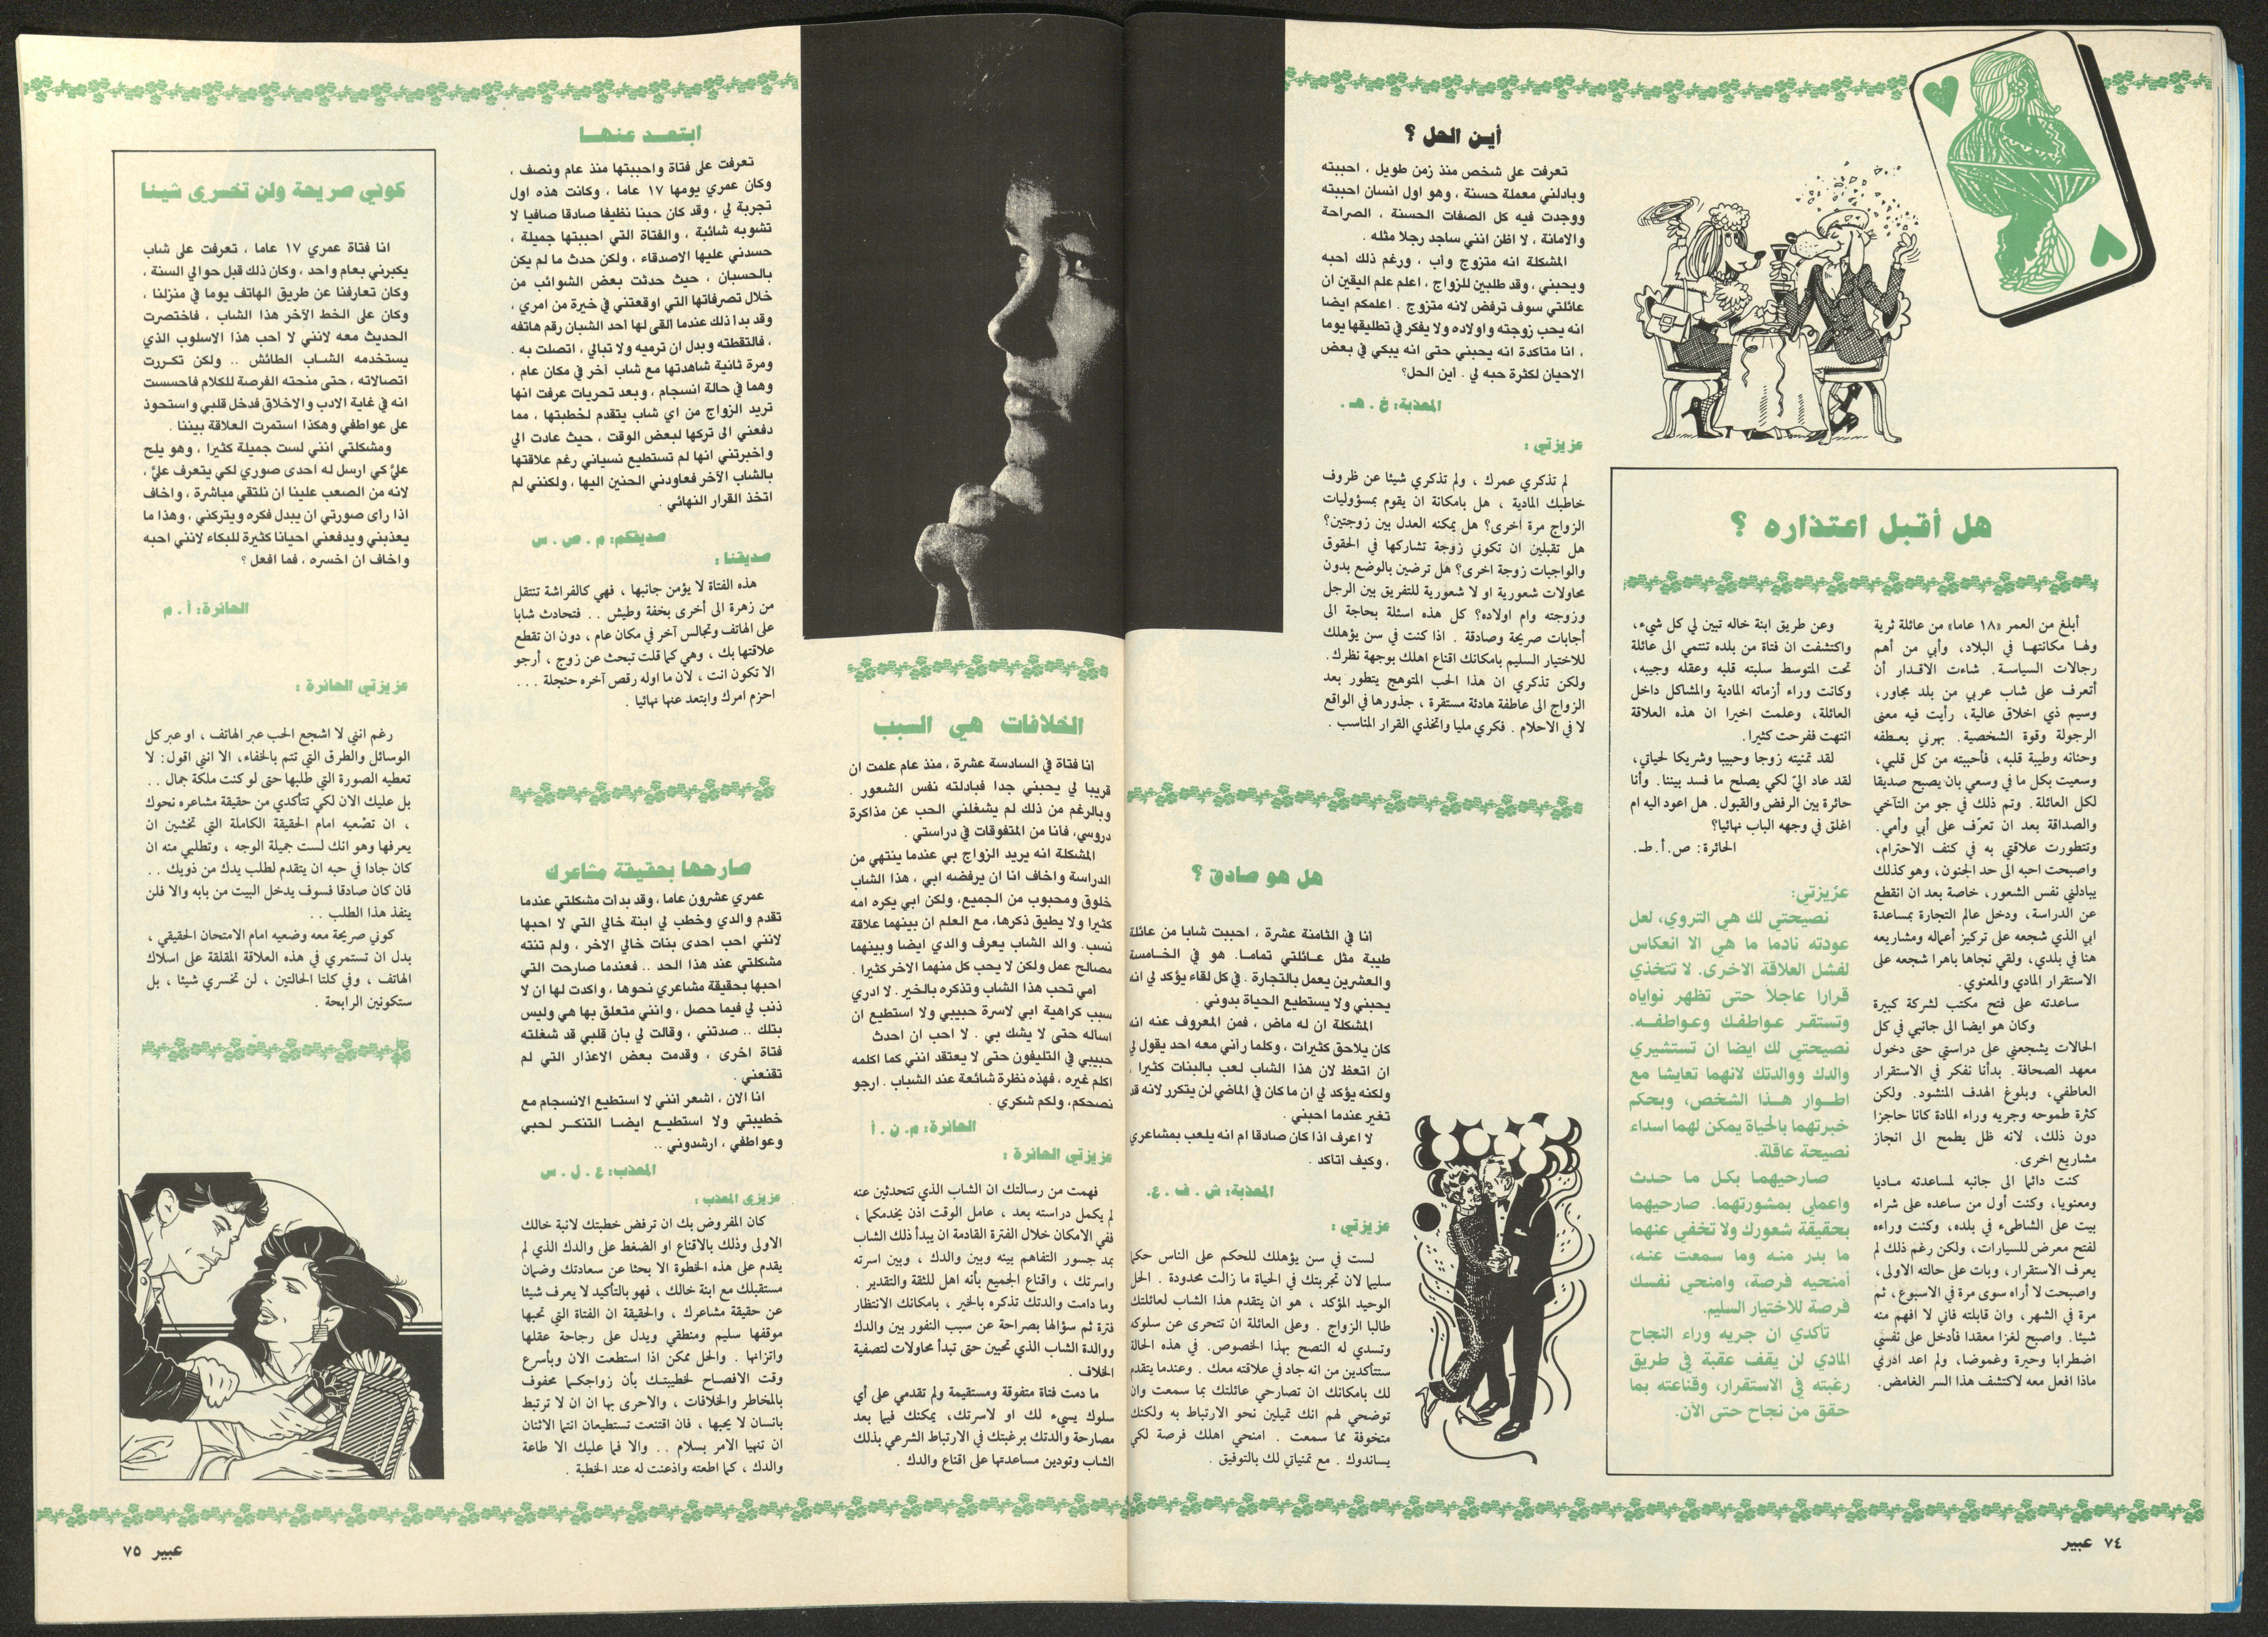 هل أقبل اعتذاره ؟
أبلغ من العمر «١٨ عاما» من عائلة ثرية
ولها مكانتها في البلاد، وأبي من أهم
رجالات السياسة. شاءت الاقدار أن
أتعرف على شاب عربي من بلد مجاور،
وسيم ذي اخلاق عالية، رأيت فيه معنى
الرجولة وقوة الشخصية. بهرني بعطفه
وحنانه وطيبة قلبه، فأحببته من كل قلبي،
وسعيت بكل ما في وسعي بان يصبح صديقا
لكل العائلة. وتم ذلك في جو من التآخي
والصداقة بعد ان تعرّف على أبي وأمي.
وتتطورت علاقتي به في كنف الاحترام،
واصبحت احبه الى حد الجنون، وهو كذلك
يبادلني نفس الشعور، خاصة بعد ان انقطع
عن الدراسة، ودخل عالم التجارة بمساعدة
ابي الذي شجعه على تركيز أعماله ومشاريعه
هنا في بلدي، ولقي نجاها باهرا شجعه على
الاستقرار المادي والمعنوي.
ساعدته على فتح مكتب لشركة كبيرة
وكان هو ايضا الى جانبي في كل
الحالات يشجعني على دراستي حتى دخول
معهد الصحافة. بدأنا نفكر في الاستقرار
العاطفي، وبلوغ الهدف المنشود. ولكن
كثرة طموحه وجريه وراء المادة كانا حاجزا
دون ذلك، لانه ظل يطمح الى انجاز
مشاريع اخرى.
كنت دائما الى جانبه لمساعدته ماديا
ومعنويا، وكنت أول من ساعده على شراء
بيت على الشاطىء في بلده، وكنت وراءه
لفتح معرض للسيارات، ولكن رغم ذلك لم
يعرف الاستقرار، وبات على حالته الاولى،
واصبحت لا أراه سوى مرة في الاسبوع، ثم
مرة في الشهر، وان قابلته فاني لا افهم منه
شيئا. واصبح لغزا معقدا فأدخل على نفسي
اضطرابا وحيرة وغموضا، ولم اعد ادري
ماذا افعل معه لاكتشف هذا السر الغامض.
وعن طريق ابنة خاله تبين لي كل شيء،
واكتشفت ان فتاة من بلده تنتمي الى عائلة
تحت المتوسط سلبته قلبه وعقله وجيبه،
وكانت وراء أزماته المادية والمشاكل داخل
العائلة، وعلمت اخيرا ان هذه العلاقة
انتهت ففرحت كثيرا.
لقد تمنيته زوجا وحبيبا وشريكا لحياتي،
لقد عاد اليّ لكي يصلح ما فسد بيننا. وأنا
حائرة بين الرفض والقبول. هل اعود اليه ام
اغلق في وجهه الباب نهائيا؟
الحائرة: ص.أ.ط.
عزيزتي:
نصيحتي لك هي التروي، لعل
عودته نادما ما هي الا انعكاس
لفشل العلاقة الاخرى. لا تتخذي
قرارا عاجلاً حتى تظهر نواياه
وتستقر عواطفك وعواطفه.
نصيحتي لك ايضا ان تستشيري
والدك ووالدتك لانهما تعايشا مع
اطوار هذا الشخص، وبحكم
خبرتهما بالحياة يمكن لهما اسداء
نصيحة عاقلة.
صارحيهما بكل ما حدث
واعملي بمشورتهما. صارحيهما
بحقيقة شعورك ولا تخفي عنهما
ما بدر منه وما سمعت عنه،
أمنحيه فرصة، وامنحي نفسك
فرصة للاختيار السليم.
تأكدي ان جريه وراء النجاح
المادي لن يقف عقبة في طريق
رغبته في الاستقرار، وقناعته بما
حقق من نجاح حتى الآن.
أين الحل ؟
تعرفت على شخص منذ زمن طويل ، احببته
وبادلني معملة حسنة ، وهو اول انسان احببته
ووجدت فيه كل الصفات الحسنة ، الصراحة
والامانة ، لا اظن انني ساجد رجلا مثله .
المشكلة انه متزوج واب ، ورغم ذلك احبه
ويحبني ، وقد طلبين للزواج ، اعلم علم اليقين ان
عائلتي سوف ترفض لانه متزوج . اعلمكم ايضا
انه يحب زوجته واولاده ولا يفكر في تطليقها يوما
، انا متاكدة انه يحبني حتى انه يبكي في بعض
الاحيان لكثرة حبه لي . اين الحل؟
المعذبة: خ . هـ .
عزيزتي :
لم تذكري عمرك ، ولم تذكري شيئا عن ظروف
خاطبك المادية ، هل بامكانة ان يقوم بمسؤوليات
الزواج مرة أخرى؟ هل يمكنه العدل بين زوجتين؟
هل تقبلين ان تكوني زوجة تشاركها في الحقوق
والواجبات زوجة اخرى؟ هل ترضين بالوضع بدون
محاولات شعورية او لا شعورية للتفريق بين الرجل
وزوجته وام اولاده؟ كل هذه اسئلة بحاجة الى
أجابات صريحة وصادقة . اذا كنت في سن يؤهلك
للاختيار السليم بامكانك اقناع اهلك بوجهة نظرك.
ولكن تذكري ان هذا الحب المتوهج يتطور بعد
الزواج الى عاطفة هادئة مستقرة ، جذورها في الواقع
لا في الاحلام . فكري مليا واتخذي القرار المناسب .
هل هو صادق ؟
انا في الثامنة عشرة ، احببت شابا من عائلة
طيبة مثل عائلتي تماما. هو في الخامسة
والعشرين يعمل بالتجارة . في كل لقاء يؤكد لي انه
يحبني ولا يستطيع الحياة بدوني .
المشكلة ان له ماض ، فمن المعروف عنه انه
كان يلاحق كثيرات ، وكلما رآني معه احد يقول لي
ان اتعظ لان هذا الشاب لعب بالبنات كثيرا ،
ولكنه يؤكد لي ان ما كان في الماضي لن يتكرر لانه قد
تغير عندما احبني .
لا اعرف اذا كان صادقا ام انه يلعب بمشاعري
، وكيف اتاكد .
المعذبة: ش . ف . ع.
عزيزتي :
لست في سن يؤهلك للحكم على الناس حكما
سليما لان تجربتك في الحياة ما زالت محدودة . الحل
الوحيد المؤكد ، هو ان يتقدم هذا الشاب لعائلتك
طالبا الزواج . وعلى العائلة ان تتحرى عن سلوكه
وتسدي له النصح بهذا الخصوص. في هذه الحالة
ستتأكدين من انه جاد في علاقته معك . وعندما يتقدم
لك بامكانك ان تصارحي عائلتك بما سمعت وان
توضحي لهم انك تميلين نحو الارتباط به ولكنك
متخوفة مما سمعت . امنحي اهلك فرصة لكي
يساندوك . مع تمنياتي لك بالتوفيق .
٧٤ عبير
الخلافات هي السبب
انا فتاة في السادسة عشرة ، منذ عام علمت ان
قريبا لي يحبني جدا فبادلته نفس الشعور .
وبالرغم من ذلك لم يشغلني الحب عن مذاكرة
دروسي، فانا من المتفوقات في دراستي .
المشكلة انه يريد الزواج بي عندما ينتهي من
الدراسة واخاف انا ان يرفضه ابي ، هذا الشاب
خلوق ومحبوب من الجميع، ولكن ابي يكره امه
كثيرا ولا يطيق ذكرها، مع العلم ان بينهما علاقة
نسب. والد الشاب يعرف والدي ايضا وبينهما
مصالح عمل ولكن لا يحب كل منهما الاخر كثيرا .
أمي تحب هذا الشاب وتذكره بالخير . لا ادري
سبب كراهية ابي لاسرة حبيبي ولا استطيع ان
اساله حتى لا يشك بي . لا احب ان احدث
حبيبي في التليفون حتى لا يعتقد انني كما اكلمه
اكلم غيره ، فهذه نظرة شائعة عند الشباب . ارجو
نصحكم، ولكم شكري .
الحائرة: م. ن . أ
عزيزتي الحائرة :
فهمت من رسالتك ان الشاب الذي تتحدثين عنه
لم يكمل دراسته بعد ، عامل الوقت اذن يخدمكما ،
ففي الامكان خلال الفترة القادمة ان يبدأ ذلك الشاب
بمد جسور التفاهم بينه وبين والدك ، وبين اسرته
واسرتك ، واقناع الجميع بأنه اهل للثقة والتقدير .
وما دامت والدتك تذكره بالخير ، بامكانك الانتظار
فترة ثم سؤالها بصراحة عن سبب النفور بين والدك
ووالدة الشاب الذي تحبين حتى تبدأ محاولات لتصفية
الخلاف .
ما دمت فتاة متفوقة ومستقيمة ولم تقدمي على أي
سلوك يسيء لك او لاسرتك، يمكنك فيما بعد
مصارحة والدتك برغبتك في الارتباط الشرعي بذلك
الشاب وتودين مساعدتها على اقناع والدك .
ابتعد عنها
تعرفت على فتاة واحببتها منذ عام ونصف ،
وكان عمري يومها ١٧ عاما ، وكانت هذه اول
تجربة لي ، وقد كان حبنا نظيفا صادقا صافيا لا
تشوبه شائبة ، والفتاة التي احببتها جميلة ،
حسدني عليها الاصدقاء ، ولكن حدث ما لم يكن
بالحسبان ، حيث حدثت بعض الشوائب من
خلال تصرفاتها التي اوقعتني في خيرة من امري ،
وقد بدأ ذلك عندما القى لها احد الشبان رقم هاتفه
، فالتقطته وبدل ان ترميه ولا تبالي ، اتصلت به .
ومرة ثانية شاهدتها مع شاب آخر في مكان عام ،
وهما في حالة انسجام ، وبعد تحريات عرفت انها
تريد الزواج من اي شاب يتقدم لخطبتها ، مما
دفعني الى تركها لبعض الوقت ، حيث عادت الي
واخبرتني انها لم تستطيع نسياني رغم علاقتها
بالشاب الآخر فعاودني الحنين اليها ، ولكنني لم
اتخذ القرار النهائي .
صديقكم: م . ص . س
صديقنا :
هذه الفتاة لا يؤمن جانبها ، فهي كالفراشة تنتقل
من زهرة الى أخرى بخفة وطيش . . فتحادث شابا
على الهاتف وتجالس آخر في مكان عام ، دون ان تقطع
علاقتها بك ، وهي كما قلت تبحث عن زوج ، أرجو
الا تكون انت ، لان ما اوله رقص آخره حنجلة . . .
احزم امرك وابتعد عنها نهائيا .
صارحها بحقيقة مشاعرك
عمري عشرون عاما ، وقد بدات مشكلتي عندما
تقدم والدي وخطب لي ابنة خالي التي لا احبها
لانني احب احدى بنات خالي الاخر ، ولم تنته
مشكلتي عند هذا الحد .. فعندما صارحت التي
احبها بحقيقة مشاعري نحوها ، واكدت لها ان لا
ذنب لي فيما حصل ، وانني متعلق بها هي وليس
بتلك .. صدتني ، وقالت لي بان قلبي قد شغلته
فتاة اخرى ، وقدمت بعض الاعذار التي لم
تقنعني .
انا الان ، اشعر انني لا استطيع الانسجام مع
خطيبتي ولا استطيع ايضا التنكر لحبي
وعواطفي ، ارشدوني ..
المعذب: ع . ل . س
عزيزي المعذب :
كان المفروض بك ان ترفض خطبتك لابنة خالك
الاولى وذلك بالاقناع او الضغط على والدك الذي لم
يقدم على هذه الخطوة الا بحثا عن سعادتك وضمان
مستقبلك مع ابنة خالك ، فهو بالتأكيد لا يعرف شيئا
عن حقيقة مشاعرك ، والحقيقة ان الفتاة التي تحبها
موقفها سليم ومنطقي ويدل على رجاحة عقلها
واتزانها . والحل ممكن اذا استطعت الان وبأسرع
وقت الافصاح لخطيبتك بأن زواجكما محفوف
بالمخاطر والخلافات ، والاحرى بها ان ان لا ترتبط
بانسان لا يحبها ، فان اقتنعت تستطيعان انتما الاثنان
ان تنهيا الامر بسلام . . والا فما عليك الا طاعة
والدك ، كما اطعته واذعنت له عند الخطبة .
كوني صريحة ولن تخسري شيئا
انا فتاة عمري ١٧ عاما ، تعرفت على شاب
يكبرني بعام واحد ، وكان ذلك قبل حوالي السنة ،
وكان تعارفنا عن طريق الهاتف يوما في منزلنا ،
وكان على الخط الآخر هذا الشاب ، فاختصرت
الحديث معه لانني لا احب هذا الاسلوب الذي
يستخدمه الشاب الطائش .. ولكن تكررت
اتصالاته ، حتى منحته الفرصة للكلام فاحسست
انه في غاية الادب والاخلاق فدخل قلبي واستحوذ
على عواطفي وهكذا استمرت العلاقة بيننا .
ومشكلتي انني لست جميلة كثيرا ، وهو يلح
عليّ كي ارسل له احدى صوري لكي يتعرف عليّ ،
لانه من الصعب علينا ان نلتقي مباشرة ، واخاف
اذا رأى صورتي ان يبدل فكره ويتركني ، وهذا ما
يعذبني ويدفعني احيانا كثيرة للبكاء لانني احبه
واخاف ان اخسره ، فما افعل ؟
الحائرة: أ . م
عزيزتي الحائرة :
رغم انني لا اشجع الحب عبر الهاتف ، او عبر كل
الوسائل والطرق التي تتم بالخفاء، الا انني اقول: لا
تعطيه الصورة التي طلبها حتى لو كنت ملكة جمال . .
بل عليك الان لكي تتأكدي من حقيقة مشاعره نحوك
، ان تضعيه امام الحقيقة الكاملة التي تخشين ان
يعرفها وهو انك لست جميلة الوجه ، وتطلبي منه ان
كان جادا في حبه ان يتقدم لطلب يدك من ذويك . .
فان كان صادقا فسوف يدخل البيت من بابه والا فلن
ينفذ هذا الطلب . .
كوني صريحة معه وضعيه امام الامتحان الحقيقي ،
بدل ان تستمري في هذه العلاقة المقلقة على اسلاك
الهاتف ، وفي كلتا الحالتين ، لن تخسري شيئا ، بل
ستكونين الرابحة .
عبير ٧٥